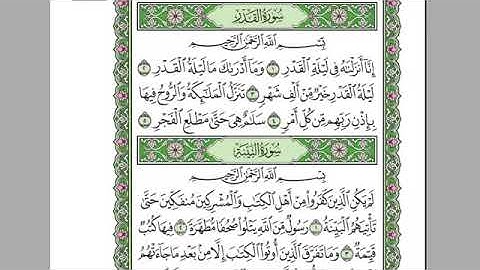 سُورَةُ الْقَدْرِ
بِسْمِ اللَّهِ الرَّحْمَٰنِ الرَّحِيمِ
إِنَّا أَنزَلْنَاهُ فِي لَيْلَةِ الْقَدْرِ ١ وَمَا أَدْرَاكَ مَا لَيْلَةُ الْقَدْرِ ٢
لَيْلَةُ الْقَدْرِ خَيْرٌ مِّنْ أَلْفِ شَهْرٍ ٣ تَنَزَّلُ الْمَلَائِكَةُ وَالرُّوحُ فِيهَا
بِإِذْنِ رَبِّهِم مِّن كُلِّ أَمْرٍ ٤ سَلَامٌ هِيَ حَتَّىٰ مَطْلَعِ الْفَجْرِ ٥
سُورَةُ الْبَيِّنَةِ
بِسْمِ اللَّهِ الرَّحْمَٰنِ الرَّحِيمِ
لَمْ يَكُنِ الَّذِينَ كَفَرُوا مِنْ أَهْلِ الْكِتَابِ وَالْمُشْرِكِينَ مُنفَكِّينَ حَتَّىٰ
تَأْتِيَهُمُ الْبَيِّنَةُ ١ رَسُولٌ مِّنَ اللَّهِ يَتْلُو صُحُفًا مُّطَهَّرَةً ٢ فِيهَا كُتُبٌ
قَيِّمَةٌ ٣ وَمَا تَفَرَّقَ الَّذِينَ أُوتُوا الْكِتَابَ إِلَّا مِن بَعْدِ مَا جَاءَتْهُمُ